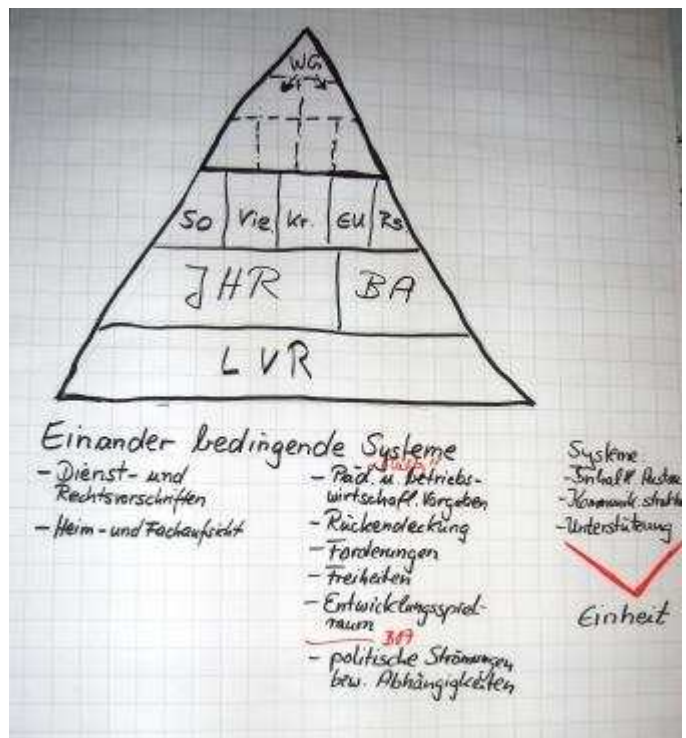 WG
So Vie Kr. EU Rs
JHR BA
LVR
Einander bedingende Systeme
- Dienst- und
Rechtsvorschriften
- Heim- und Fachaufsicht
- Päd. u. betriebs-
wirtschaftl. Vorgaben
- Rückendeckung
- Forderungen
- Freiheiten
- Entwicklungsspiel-
raum
- politische Strömungen
bew. Abhängigkeiten
Systeme
- Inhaltl.
- Kommunik.
- Unterstützung
Einheit